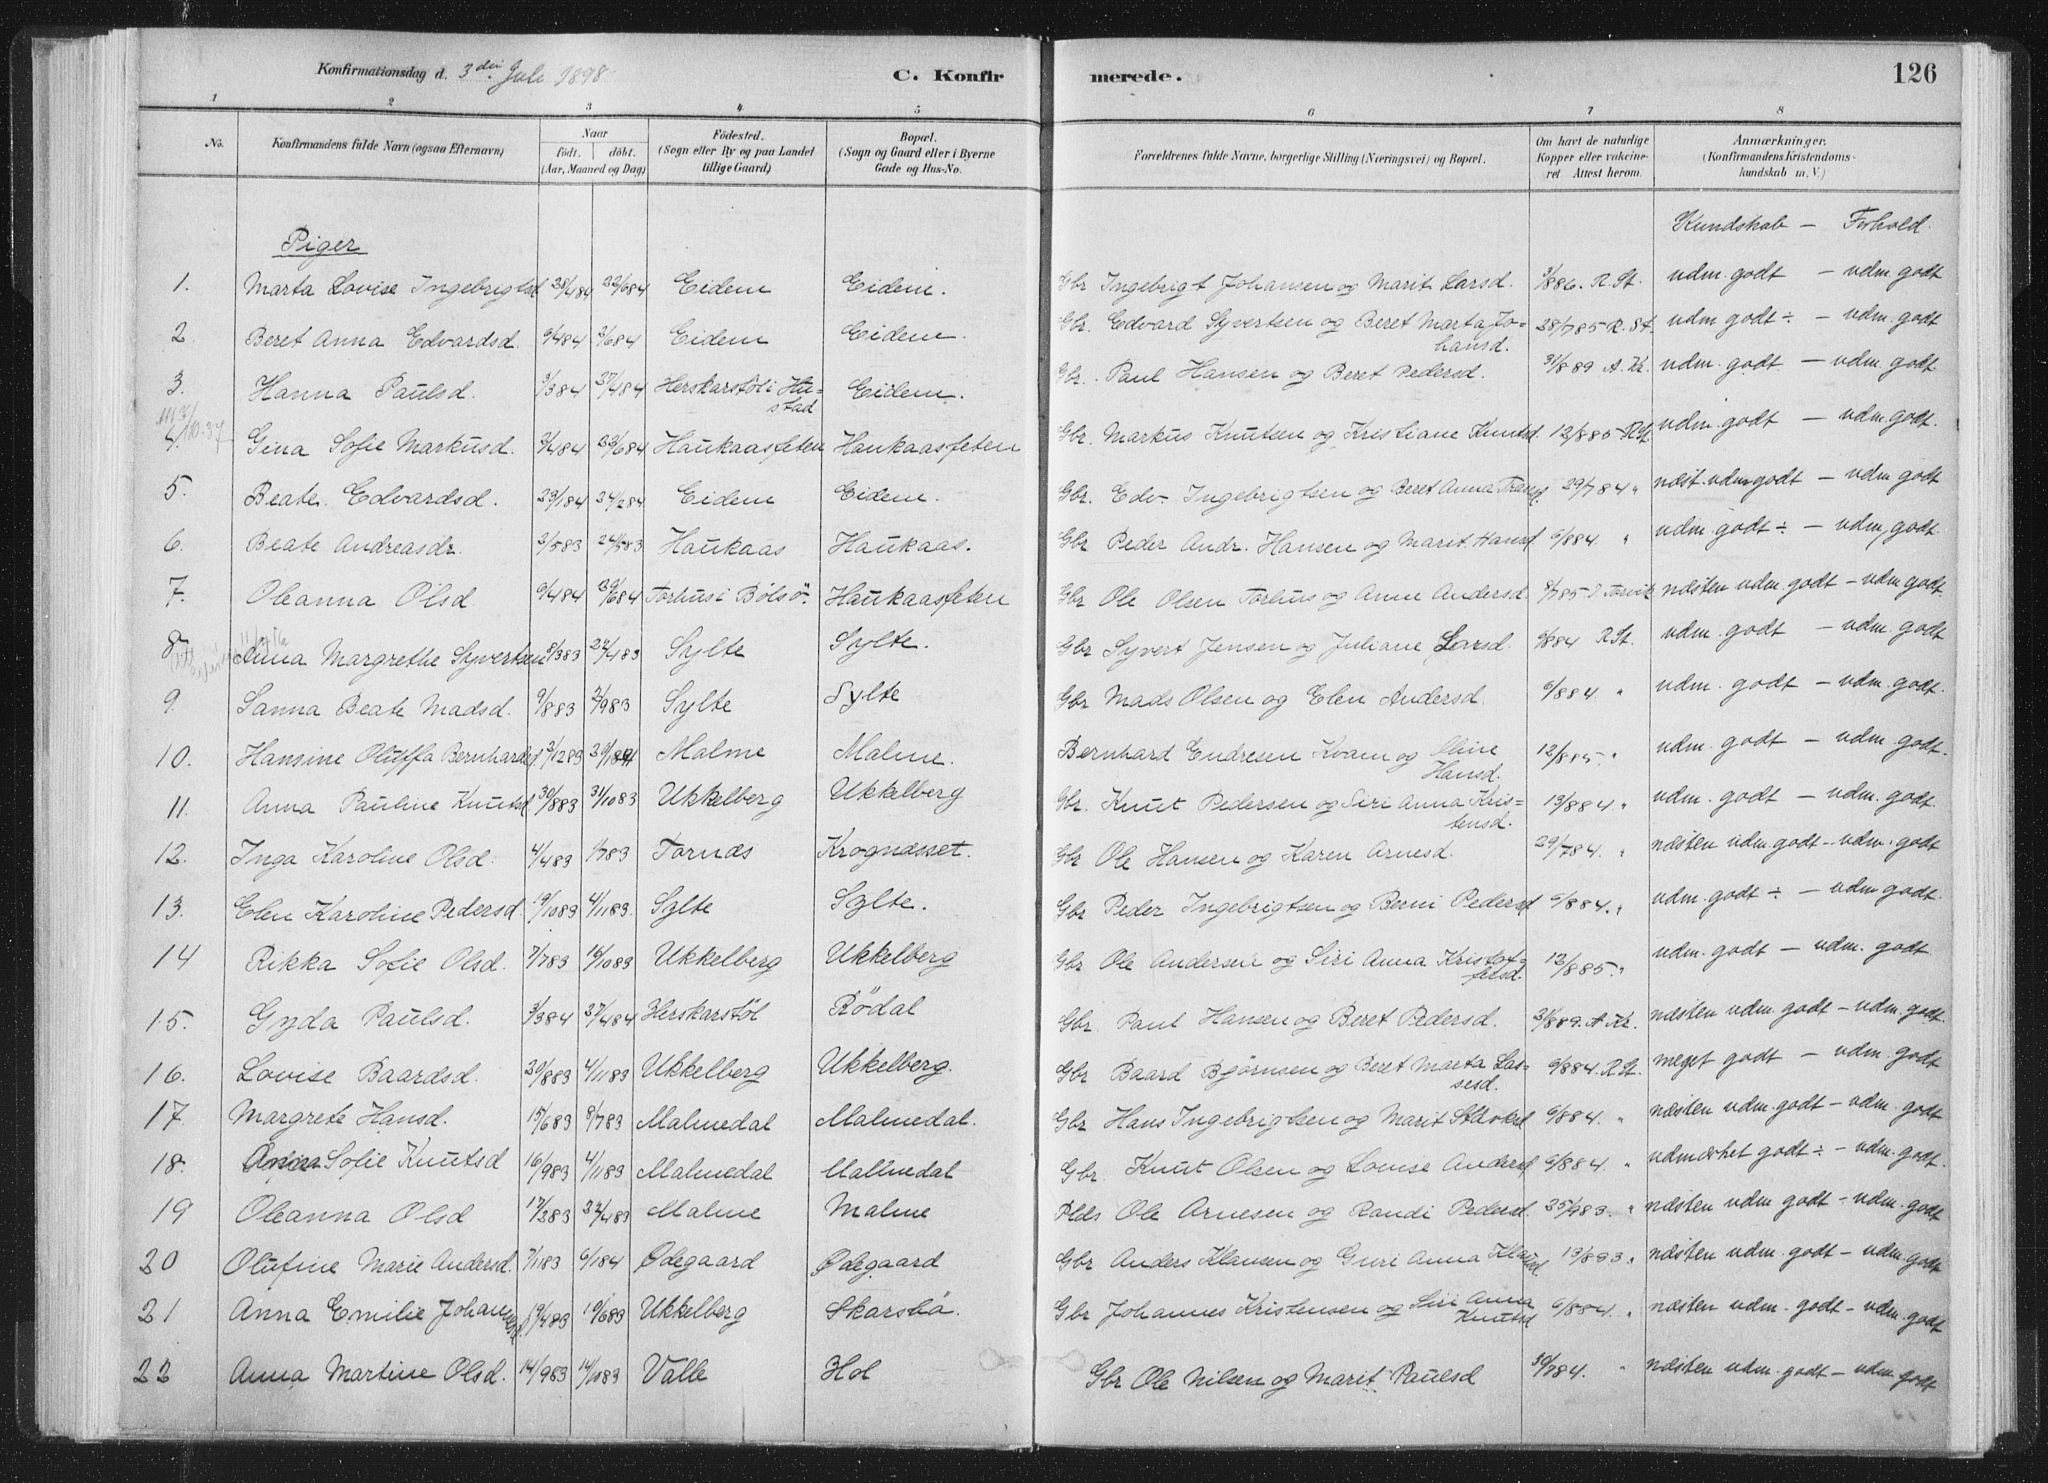 Konfirmationsdag d. 3die Juli 1898 C. Konfirmerede. 126
1 2 3 4 5 6 7 8
No. Konfirmandens fulde Navn (ogsaa Efternavn) Naar födt. döbt. (Aar, Maaned og Dag) Födested. (Sogn eller By og paa Landet tillige Gaard) Bopæl. (Sogn og Gaard eller i Byerne Gade og Hus-No. Forældrenes fulde Navne, borgerlige Stilling (Næringsvei) og Bopæl. Om havt de naturlige Kopper eller vakcineret Attest herom. Anmærkninger. (Konfirmandens Kristendomskundskab m. V.)
Piger Kundskab — Forhold.
1. Marta Lovise Ingebrigtsd 28/484 22/684 Eidem Eidem. Gbr Ingebrigt Johansen og Marit Larsd. 3/886. R. St. udm. godt — udm. godt
2. Beret Anna Edvardsd. 9/484 2/684 Eidem Eidem. Gbr. Edvard Syvertsen og Beret Marta Johansd. 28/785 R. St. udm godt ÷ — udm. godt
3. Hanna Paulsd. 3/384 27/484 Herskarstöl i Hustad Eidem. Gbr. Paul Hansen og Beret Pedersd. 31/889 A. Kr. udm. godt — udm. godt
4. Gina Sofie Markusd. 2/484 22/684 Haukaasfeten Haukaasfeten Gbr. Markus Knutsen og Kristiane Knutsd. 12/885 R St. udm. godt — udm. godt.
5. Beate Edvardsd. 29/184 24/284 Eidem Eidem. Gbr. Edv. Ingebrigtsen og Beret Anna 29/784 " næst. udm godt — udm. godt
6. Beate Andreasdr. 2/583 24/583 Haukaas Haukaas. Gbr Peder Andr. Hansen og Marit Hansd 6/884. " udm. godt ÷ — udm, godt.
7. Oleanna Olsd 9/484 29/684 Torhus i Bölsö. Haukaasfeten Gbr Ole Olsen Torhus og Anne Andersd. 8/785 næsten udm. godt — udm godt.
8 Anna Margrethe Syvertsen 8/383 22/483 Sylte Sylte. Gbr Syvert Jensen og Juliane Larsd. 6/884 R St. udm. godt — udm. godt
9. Sanna Beate Madsd. 9/883 2/983 Sylte Sylte Gbr Mads Olsen og Elen Andersd. 6/884. " udm. godt — udm. godt.
10. Hansine Oluffa Bernhardsd. 2/1283 20/184 Malme Malme. Bernhard Endresen Kvam og Oline Hansd. 12/885. " udm. godt — udm. godt.
11. Anna Pauline Knutsd 30/883 21/1083 Ukkelberg Ukkelberg Gbr. Knut Pedersen og Siri Anna Kristensd. 13/884. " udm. godt — udm. godt.
12. Inga Karoline Olsd. 4/483 1/783 Tornæs Krognæsset. Gbr Ole Hansen og Karen Arnesd. 29/784. " næsten udm godt — udm. godt
13. Elen Karoline Pedersd. 19/1083 4/1183. Sylte Sylte. Gbr Peder Ingebrigtsen og Berni Pedersd 6/884. " udm. godt ÷ — udm godt.
14 Rikka Sofie Olsd. 7/783 16/1083 Ukkelberg Ukkelberg Gbr Ole Andersen og Siri Anna Kristoffersd. 12/885. " udm. godt — udm. godt
15. Gyda Paulsd. 3/384 27/484 Herskarstöl Rödal Gbr Paul Hansen og Beret Pedersd. 31/889. A Kr. næsten udm. godt — udm. godt.
16. Lovise Baardsd. 20/883 4/1183 Ukkelberg Ukkelberg. Gbr Baard Bjørnsen og Beret Marta Lassesd. 6/884. R St. meget godt — udm. godt
17. Margrete Hansd. 15/683 8/783 Malmedal Malmedal. Gbr Hans Ingebrigtsen og Marit 6/884. " næsten udm. godt — udm. godt
18. Sofie Knutsd 16/983 4/1183 Malmedal Malmedal Gbr. Knut Olsen og Lovise Andersd 6/884. " udmærket godt ÷ — udm. godt.
19 Oleanna Olsd 17/283 22/483 Malme Malme Plds Ole Arnesen og Randi Pedersd. 25/983. " næsten udm. godt — udm. godt
20 Olufine Marie Andersd. 7/1183 6/184 Ødegaard Ødegaard Gbr Anders Klausen og Guri Anna Klausd. 13/893. " næsten udm. godt — udm. godt
21 Anna Emilie Johannesd. 19/483 10/683 Ukkelberg Skarsbö. Gbr Johannes Kristensen og Siri Anna Knutsd 6/884. " næsten udm. godt — udm. godt
22 Anna Martine Olsd. 14/983 14/1083 Valle Hol Gbr Ole Nilsen og Marit Paulsd 30/784. " næsten udm. godt — udm. godt